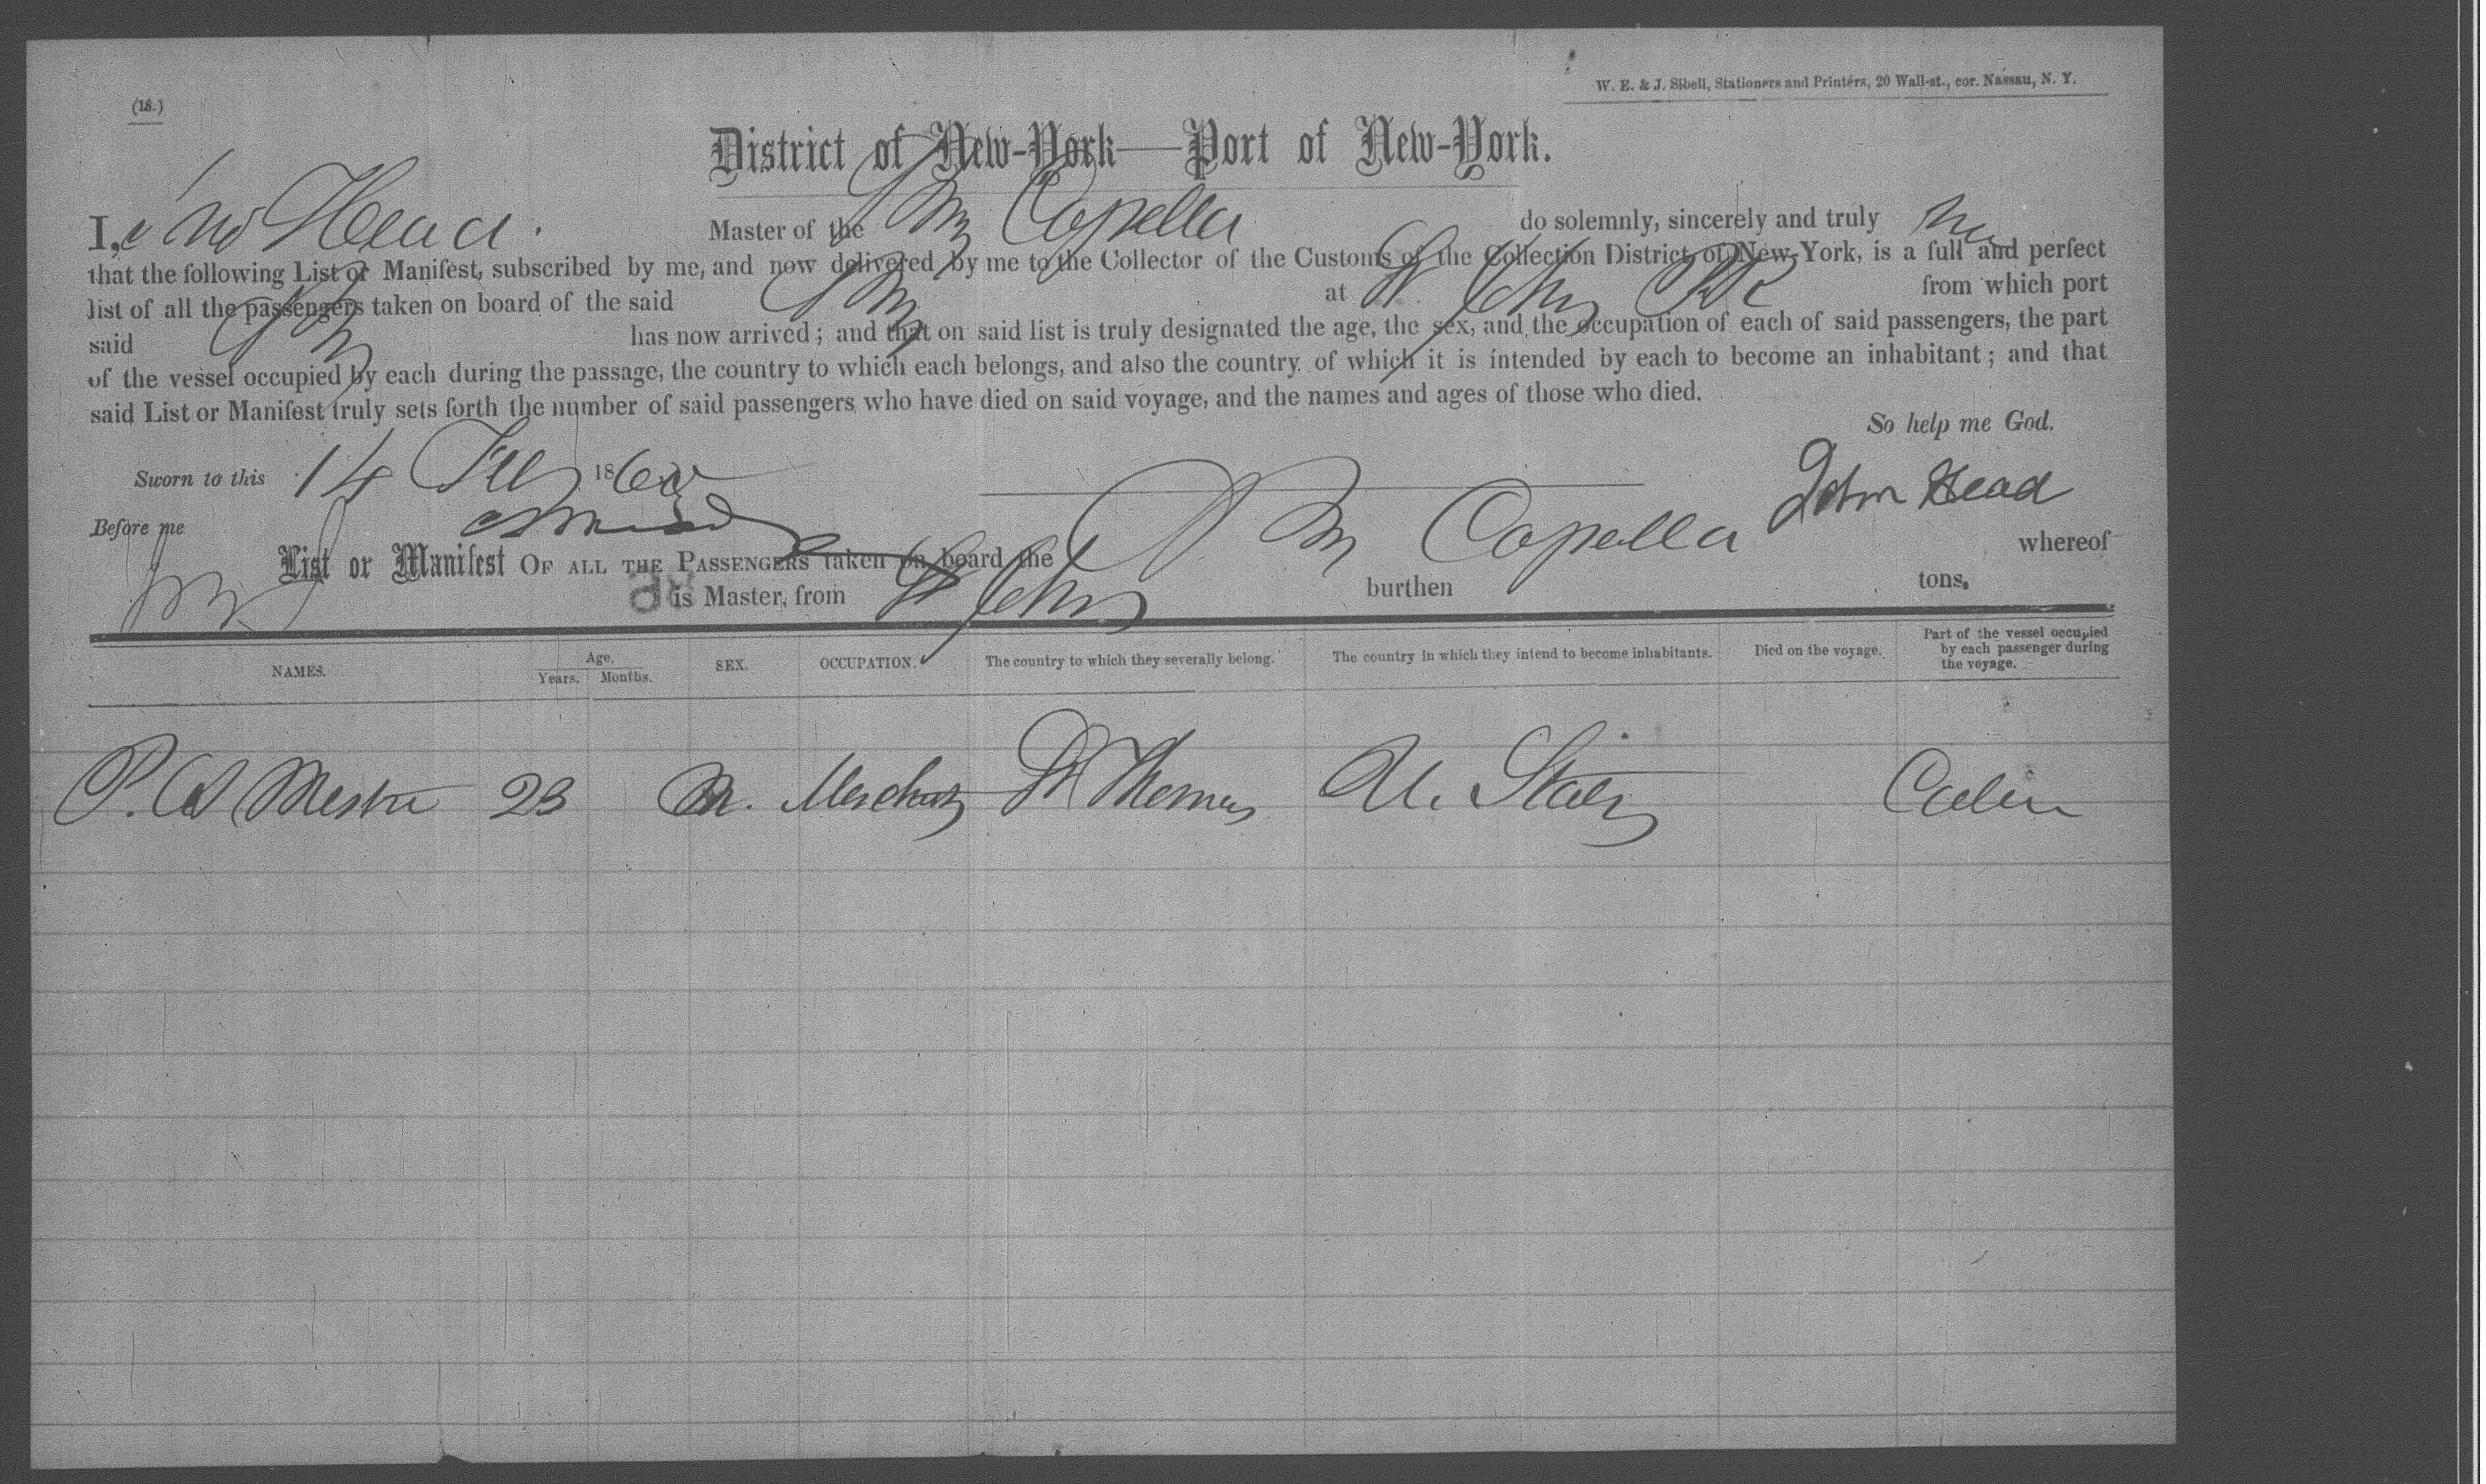 (18.)
W. E. & J. Sibell, Stationers and Printers, 20 Wall-st., cor. Nassau, N. Y.
District of New-York—Port of New-York.
I, Jno Head. Master of the Capella do solemnly, sincerely and truly
that the following List or Manifest, subscribed by me, and now delivered by me to the Collector of the Customs of the Collection District of New-York, is a full and perfect
list of all the passengers taken on board of the said at St Johns PR from which port
said has now arrived; and that on said list is truly designated the age, the sex, and the occupation of each of said passengers, the part
of the vessel occupied by each during the passage, the country to which each belongs, and also the country of which it is intended by each to become an inhabitant; and that
said List or Manifest truly sets forth the number of said passengers who have died on said voyage, and the names and ages of those who died.
So help me God.
Sworn to this 14 1860
John Head
Before me
List or Manifest OF ALL THE PASSENGERS taken on board the Capella whereof
is Master, from St Johns burthen tons.
NAMES. Age. Years. Months. SEX. OCCUPATION. The country to which they severally belong. The country in which they intend to become inhabitants. Died on the voyage. Part of the vessel occupied by each passenger during the voyage.
P. 23 M. Merchant St Thomas U. States Cabin